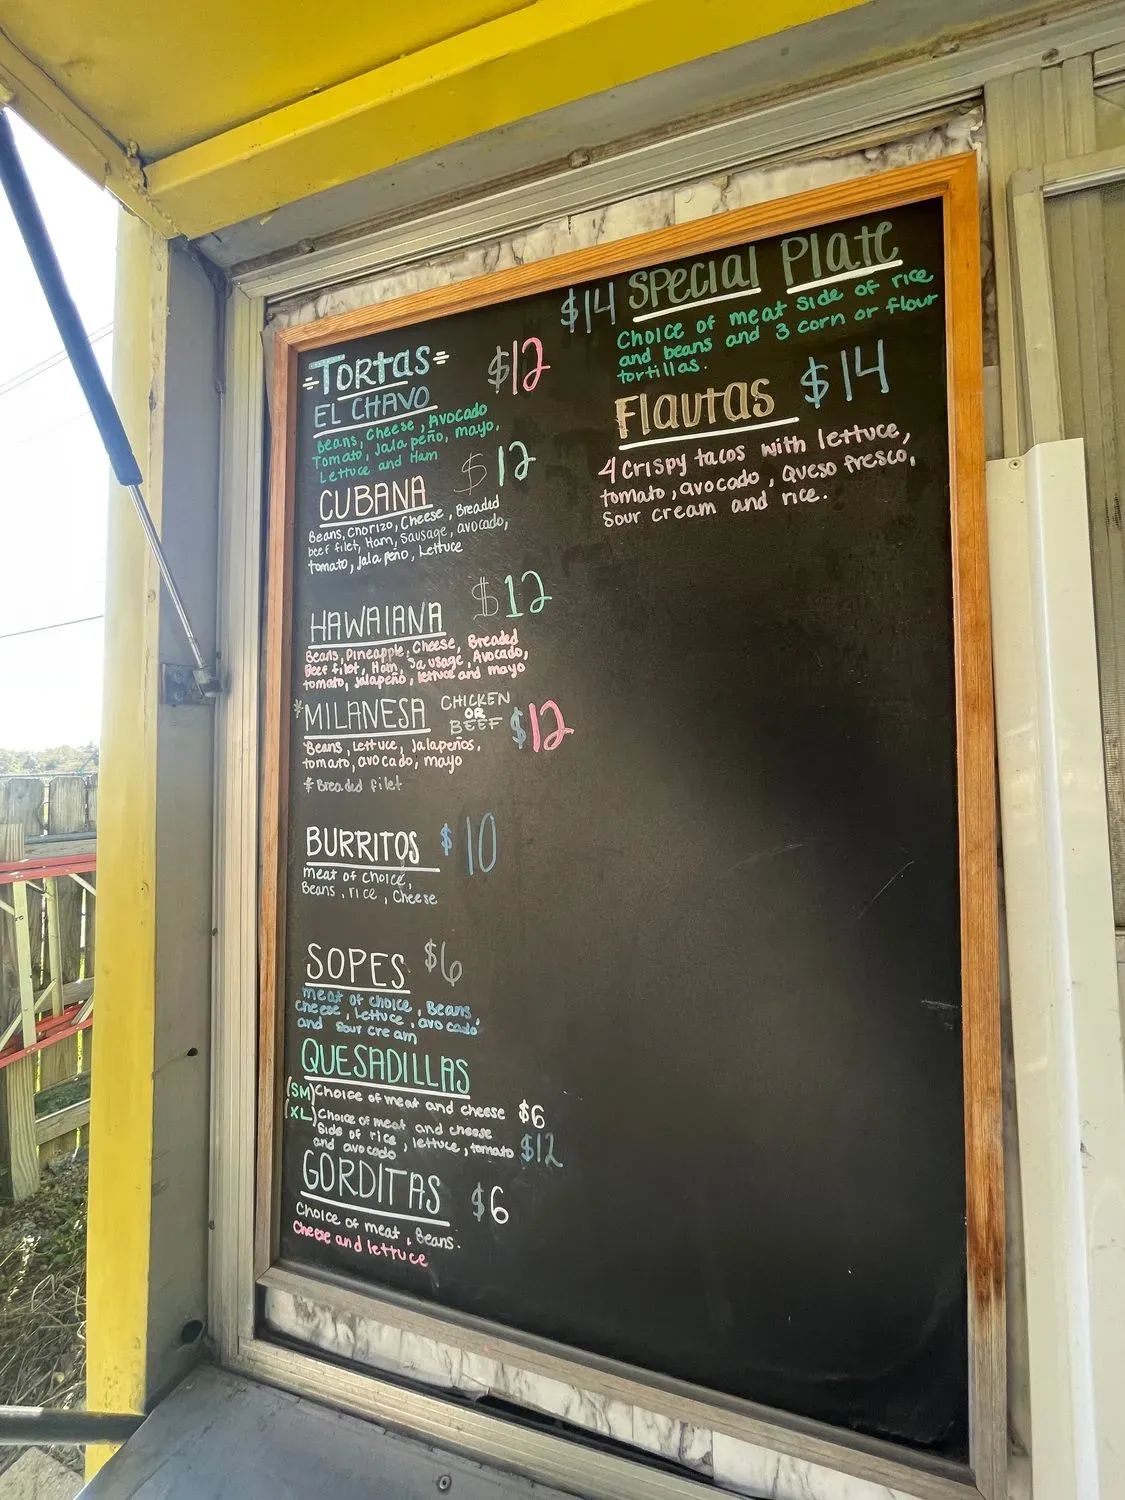 Tortas $12
EL CHAVO
Beans, Cheese, Avocado
Tomato, Jalapeño, mayo,
Lettuce and Ham
CUBANA $12
Beans, Chorizo, Cheese, Breaded
beef filet, Ham, Sausage, avocado,
tomato, Jalapeño, Lettuce
HAWAIANA $12
Beans, Pineapple, Cheese, Breaded
Beef filet, Ham, Sausage, Avocado,
tomato, jalapeño, lettuce and mayo
*MILANESA CHICKEN OR BEEF $12
Beans, Lettuce, Jalapeños,
tomato, avocado, mayo
* Breaded filet
BURRITOS $10
meat of choice,
Beans, rice, Cheese
SOPES $6
meat of choice, Beans,
cheese, Lettuce, avocado
and sour cream
QUESADILLAS
(SM) Choice of meat and cheese $6
(XL) Choice of meat and cheese
side of rice, lettuce, tomato $12
and avocado
GORDITAS $6
Choice of meat, Beans.
Cheese and lettuce
$14 Special Plate
Choice of meat side of rice
and beans and 3 corn or flour
tortillas.
Flautas $14
4 Crispy tacos with lettuce,
tomato, avocado, queso fresco,
Sour cream and rice.